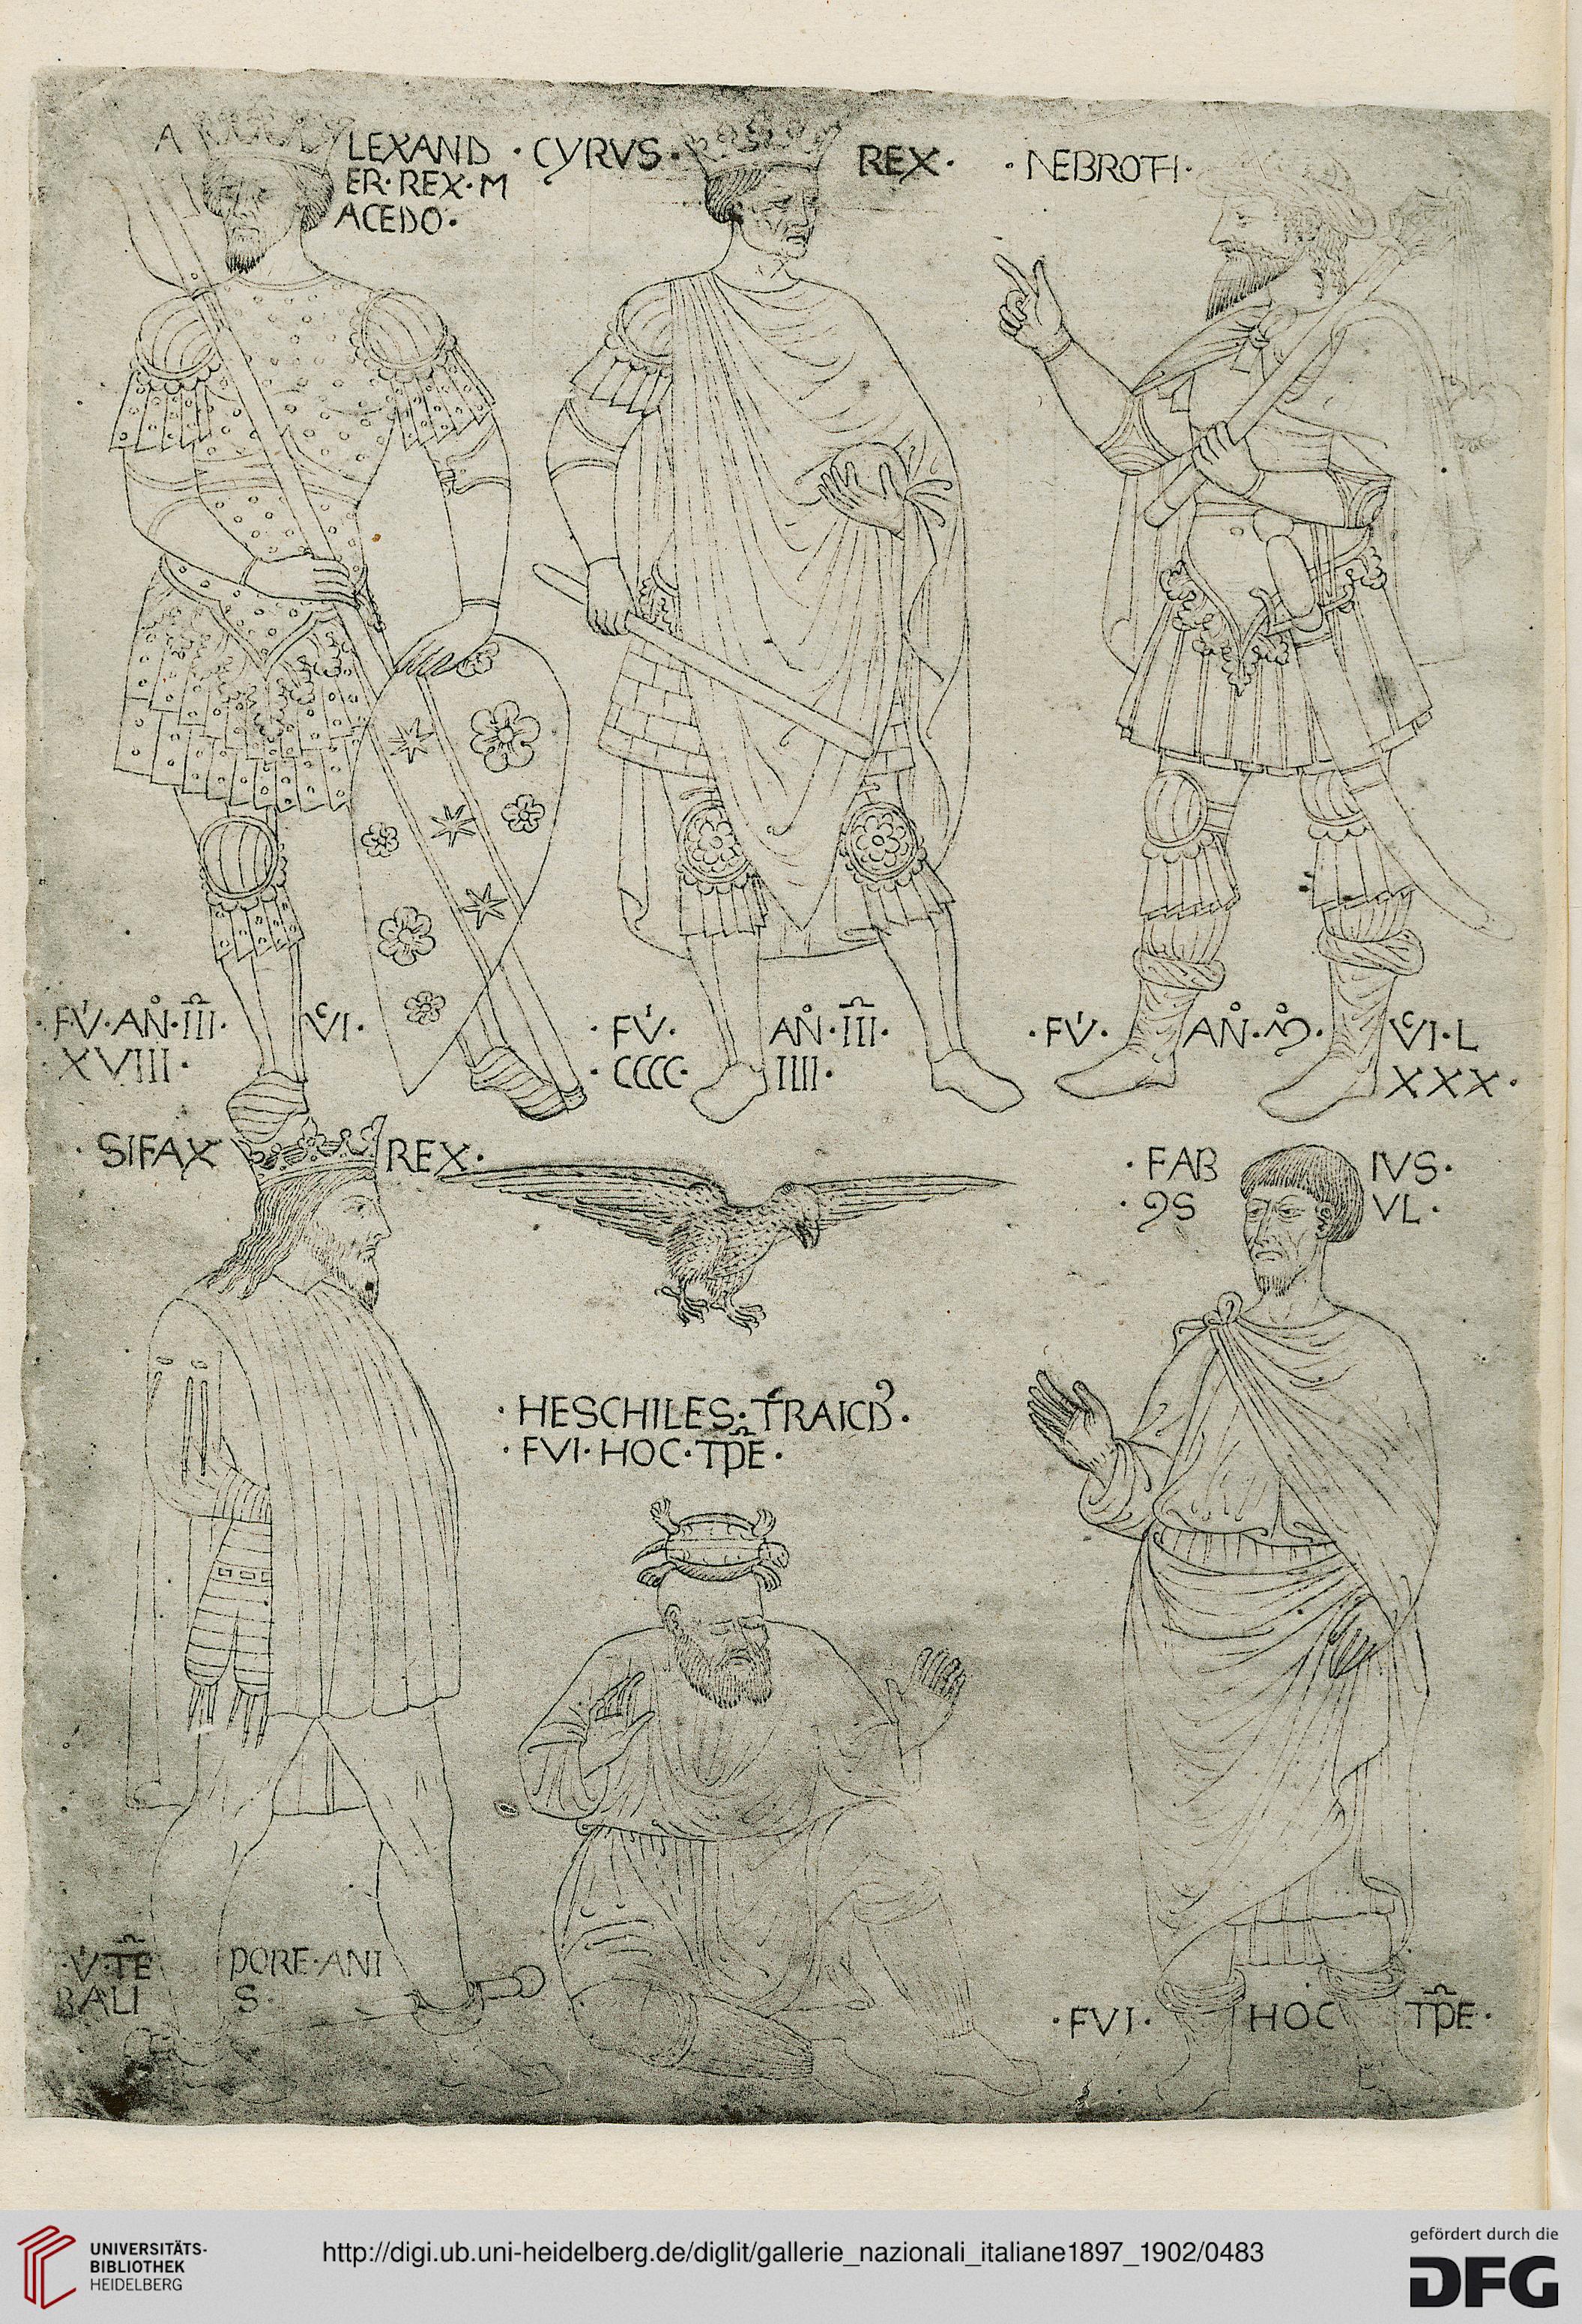 ALEXAND
ER·REX·M
ACEDO·
·CYRVS· REX·
·NEBROTH·
·FV·AN·III· VI·
XVIII·
·FV· AN·III·
·CCCC· IIII·
·FV· AN· VI·L
XXX·
·SIFAX REX·
·FAB IVS·
·9S VL·
·HESCHILES·TRAICB·
·FVI·HOC·TPE·
·V·TE PORE·ANI
BALI S·
·FVI· HOC TPE·
UNIVERSITÄTS-
BIBLIOTHEK
HEIDELBERG
http://digi.ub.uni-heidelberg.de/diglit/gallerie_nazionali_italiane1897_1902/0483
gefördert durch die
DFG